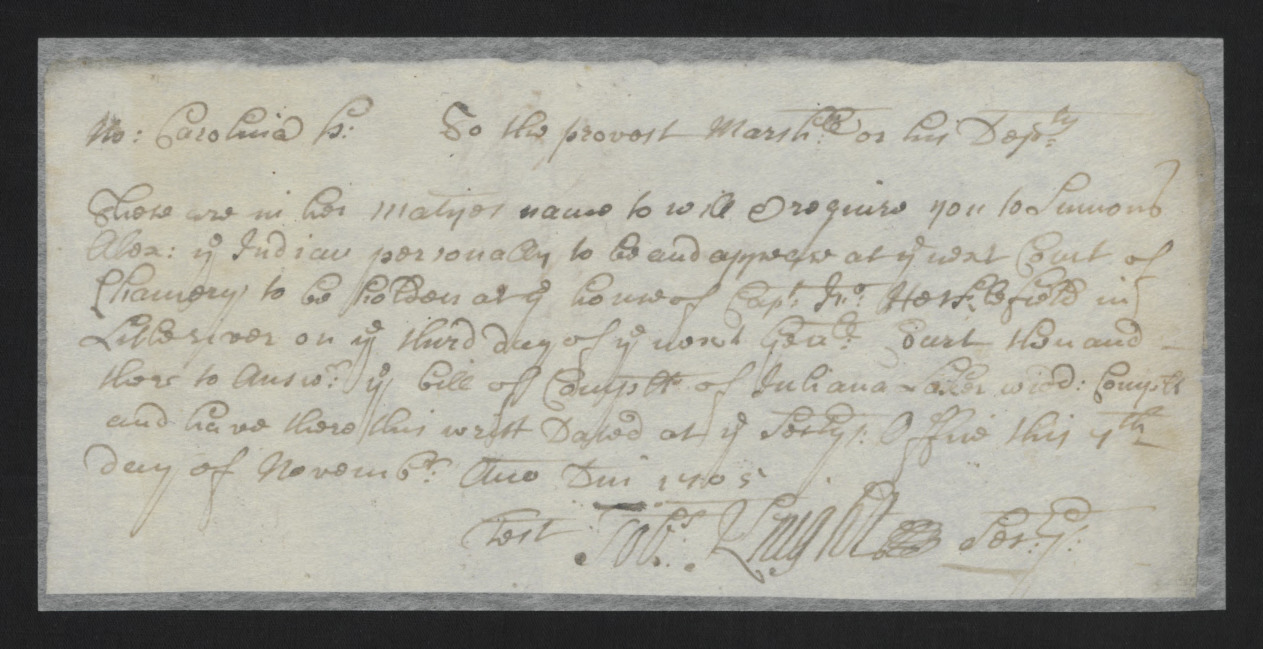 No: Carolina ss: To the provost Marshll or his Depty
These are in her Matyes name to will & require you to Summons
Alex: ye Indian personally to be and appeare at ye next Court of
Chancery to be holden at ye house of Capt. Jno. Hecklefield in
Litleriver on ye third day of ye next Genll. Court then and
there to Answr. ye bill of Complt of Juliana widd: Complt
and have there this writt Dated at ye Secrys: Office this 7th
day of Novembr. Ano Dni 1705
Test Tobs. Knight Secry.